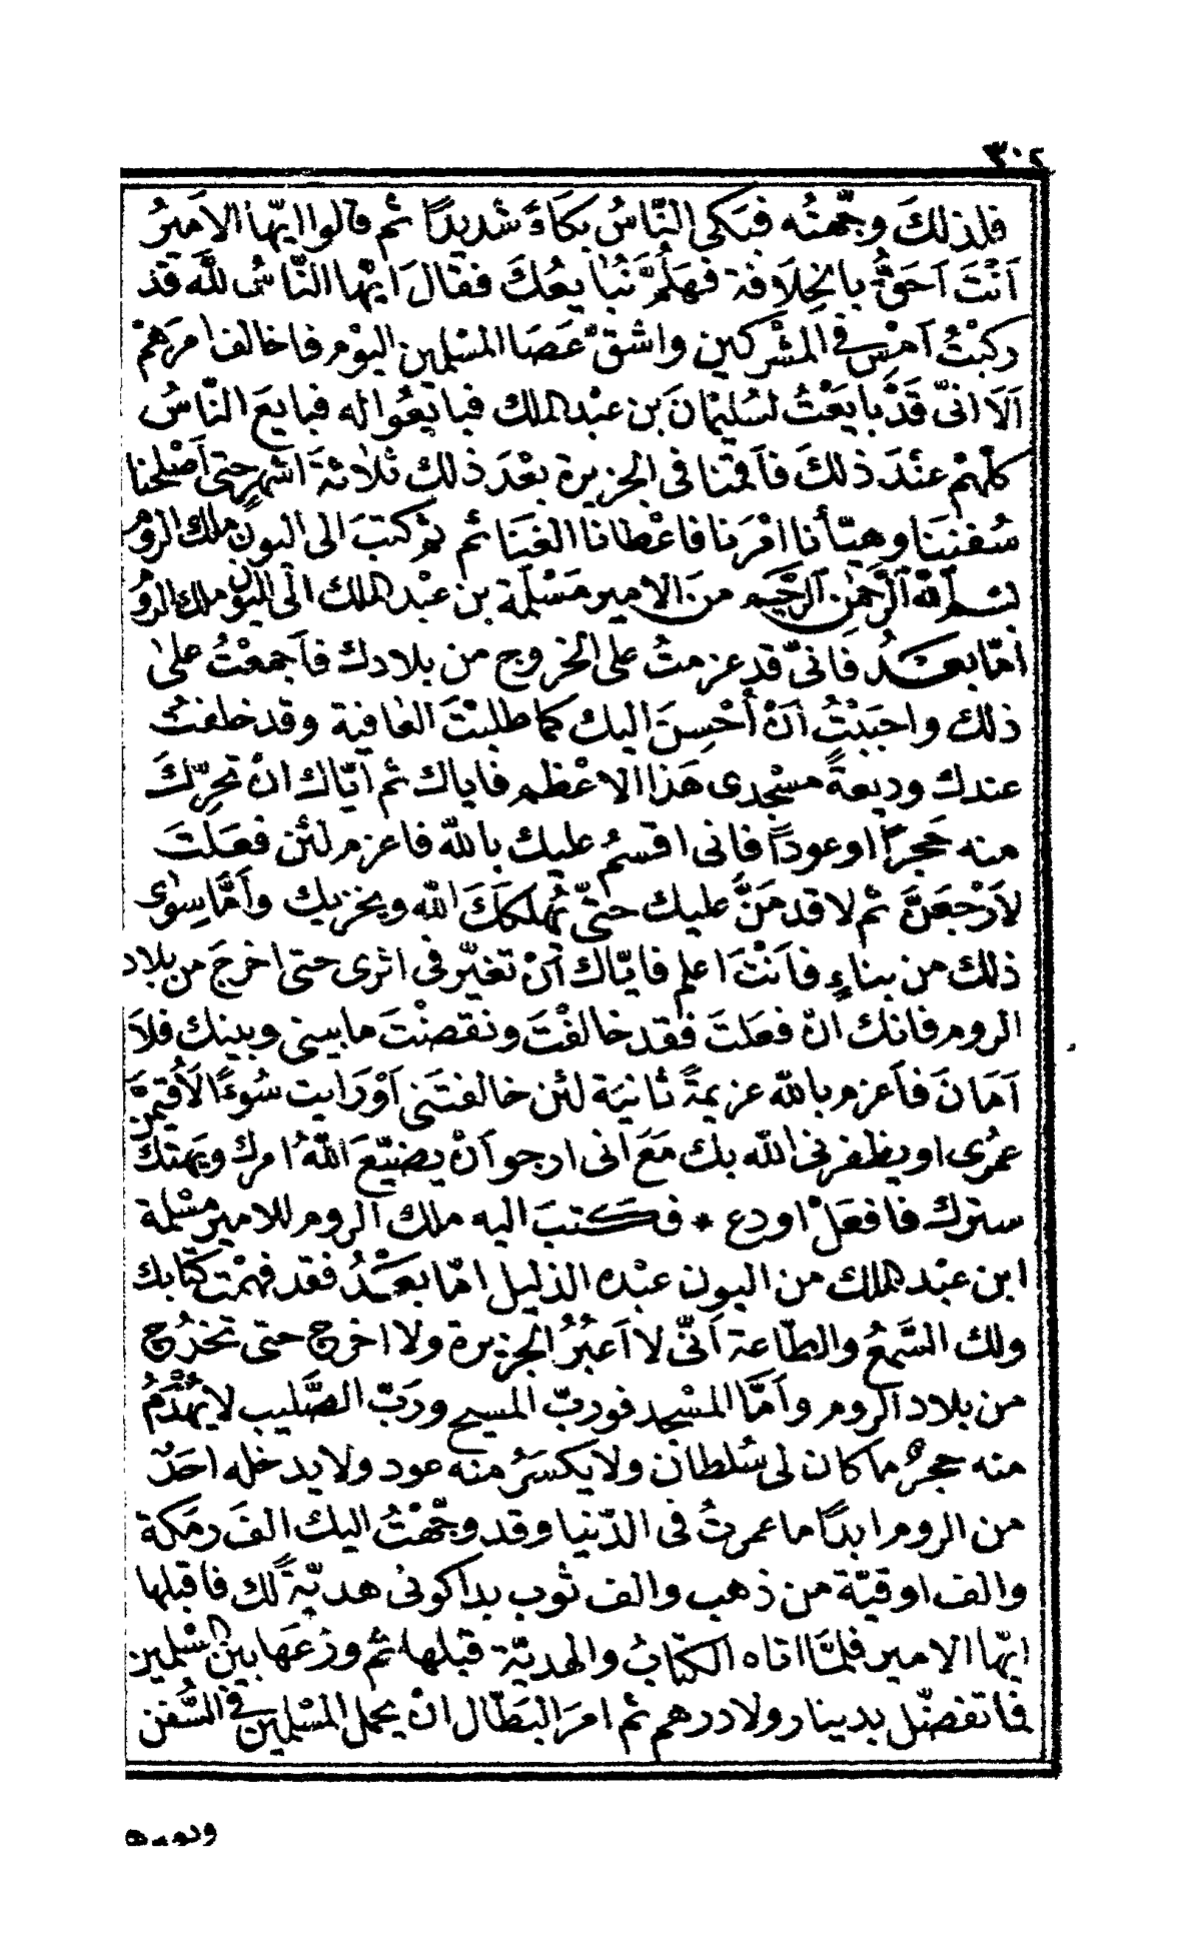 ٣٠٢
فلذلكَ وجّهتُه فبَكى النّاسُ بكاءً شديدًا ثم قالوا ايّها الامَيرُ
اَنْتَ اَحَقُّ بالخِلَافة فهَلُمَّ نُبايعُكَ فقالَ اَيّها النّاسُ للّه قد
ركبْتُ اَمْسِ فى المشركين واشقّ عَصَا المسْلمين اليوْم فاخالف امرَهمْ
اَلَا انىّ قَدْ بايَعْتُ لسُليمْانَ بن عبْد الملك فبايعُوا له فبايعَ النّاسُ
كلّهمْ عنْدَ ذلكَ فاَقمْنا فى الجزيرة بعْدَ ذلك ثلاثةَ اشهرٍ حتى اَصْلحنا
سُفنَنا وهيّأنا امْرَنا فاعْطانا الغنَا ثم ثم كتبَ الى اليون ملك الروم
بسم اللّه الرَّحمٰن الرَّحيم من الامير مَسْلمَة بن عبْد الملك الى اليون ملك الروم
اَمّا بعْدُ فانىّ قد عزمتُ على الخروج من بلادك فاَجمعْتُ علىٰ
ذلك واحبَبْتُ اَنْ أُحْسِنَ اليك كما طلبْتَ العافية وقد خلفتُ
عندك وديعةً مسْجدى هَذا الاعْظم فاياك ثم اَيّاك انْ تحرّكَ
منه حَجرًا اوعودًا فانى اقسمُ عليك باللّه فاعزم لئن فعَلتَ
لاَرْجعَنَّ ثم لا قدمَنَّ عليك حتّى تُهلكَكَ اللّه ويخزيك وأمَّا سِوٰى
ذلك من بناءٍ فاَنْتَ اعلم فايّاك اَنْ تغيّر فى اثرى حتى اخرجَ من بلاد
الروم فانك انْ فعَلتَ فقد خالفْتَ ونقضْتَ ما بينى وبينك فلَا
اَمَانَ فاَعزم باللّه عزيمةً ثانيَة لئن خالفتَنى اَوْ رَايت سُوءًا لَاُقيمَنَّ
عمُرى او يظفرنى اللّه بك مَعَ انى ارجو اَنْ يضيّعَ اللّهُ امرك ويَهتك
سترك فافعَلْ اودع * فكتبَ اليه ملك الروم للامير مسْلمة
ابن عبْد الملك من اليون عبْده الذليل امّا بعَدُ فقد فهمْت كتابك
ولك السَّمعُ والطّاعة اَنّى لا اَعبُرُ الجزيرة ولا اخرج حتى تخرُج
من بلاد الروم واَمَّا المسْجد فوربّ المسيح ورَبّ الصَّليب لا يُهْدَمُ
منه حجرٌ ما كان لى سُلطان ولا يكسَرُ منه عود ولا يدخله احَدٌ
من الروم ابدًا ما عمرتُ فى الدّنيا وقد وجّهْتُ اليك الفَ رمَكة
والف اوقيّة من ذهب والف ثوب بداكونى هديّةً لك فاقبلها
ايّها الامير فلمَّا اتاه الكتابُ والهديّة قبلها ثم وزعَها بين المسلمين
فاتفضّل بدينار ولا درهم ثم امرَ البَطّال انْ يحمل المسْلمين فى السُّفن